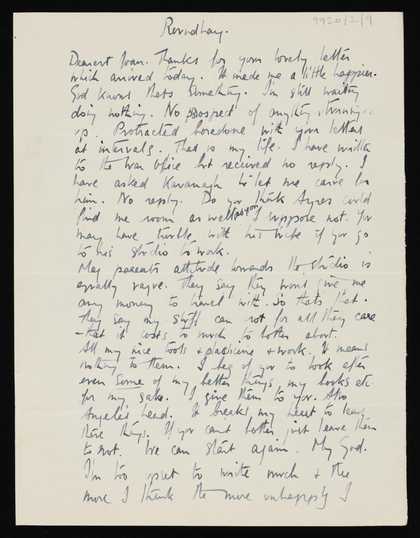 9920/2/9
Roundhay.
Dearest Joan. Thanks for your lovely letter
which arrived today. It made me a little happier.
God knows thats something. I'm still waiting
doing nothing. No prospect of anything turning
up. Protracted boredome with your letters
at intervals. That is my life. I have written
to the War Office but received no reply. I
have asked Kavanagh to let me carve for
him. No reply. Do you think Ayres could
find me room as well as you I suppose not. You
may have trouble with his wife if you go
to his studio to work.
My parents attitude towards the studio is
equally vague. They say they wont give me
any money to travel with. So thats that.
They say my stuff can rot for all they care
– that it costs to much to bother about.
All my nice tools & plasticine & work. It means
nothing to them. I beg of you to look after
even some of my better things, my books etc
for my sake. I give them to you. Also
Angela's head. It breaks my heart to leave
these things. If you cant bother just leave them
to rot. We can start again. My God.
I'm too upset to write much & the
more I think the more unhappy I